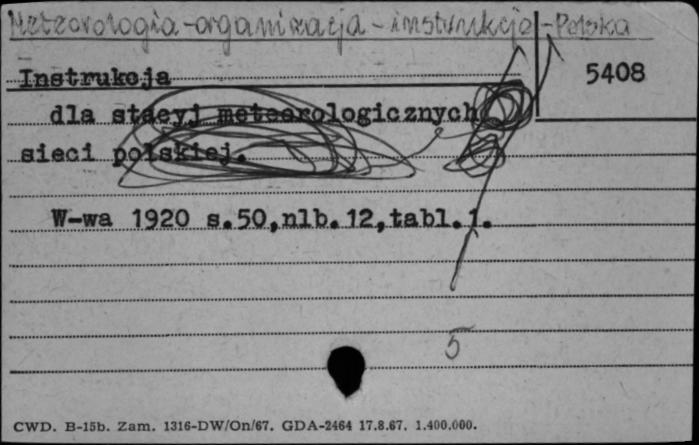 Meteorologia-organizacja-instrukcje-Polska
5408
Instrukcja
dla stacyj meteorologicznych
sieci polskiej.
W-wa 1920 s.50,nlb.12,tabl.1.
5
CWD. B-15b. Zam. 1316-DW/On/67. GDA-2464 17.8.67. 1.400.000.